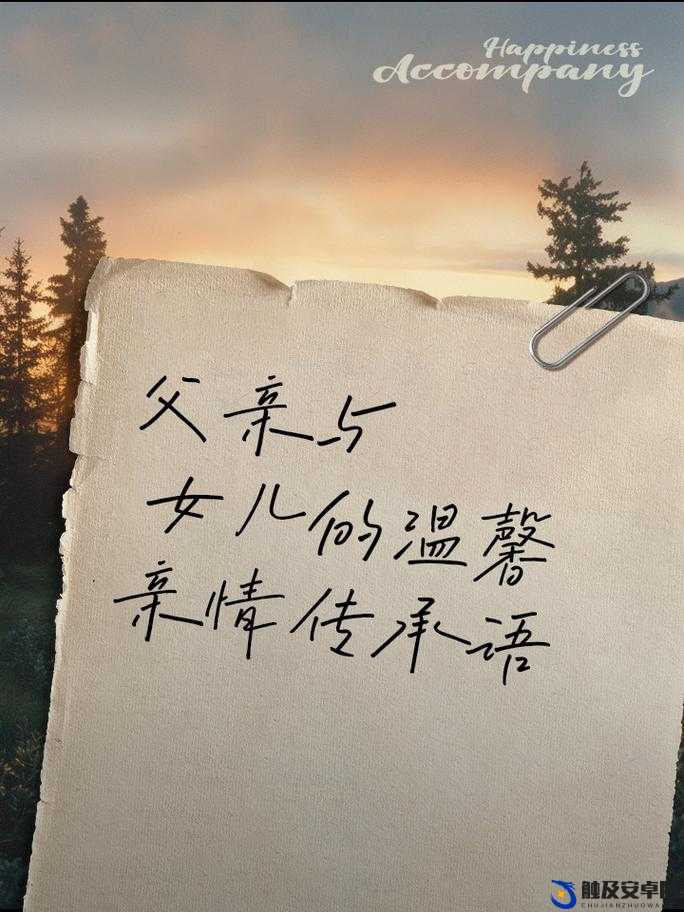 Happiness
Accompany
父亲与
女儿的温馨
亲情传承语
触及安卓
CHUJIANZHUOWA